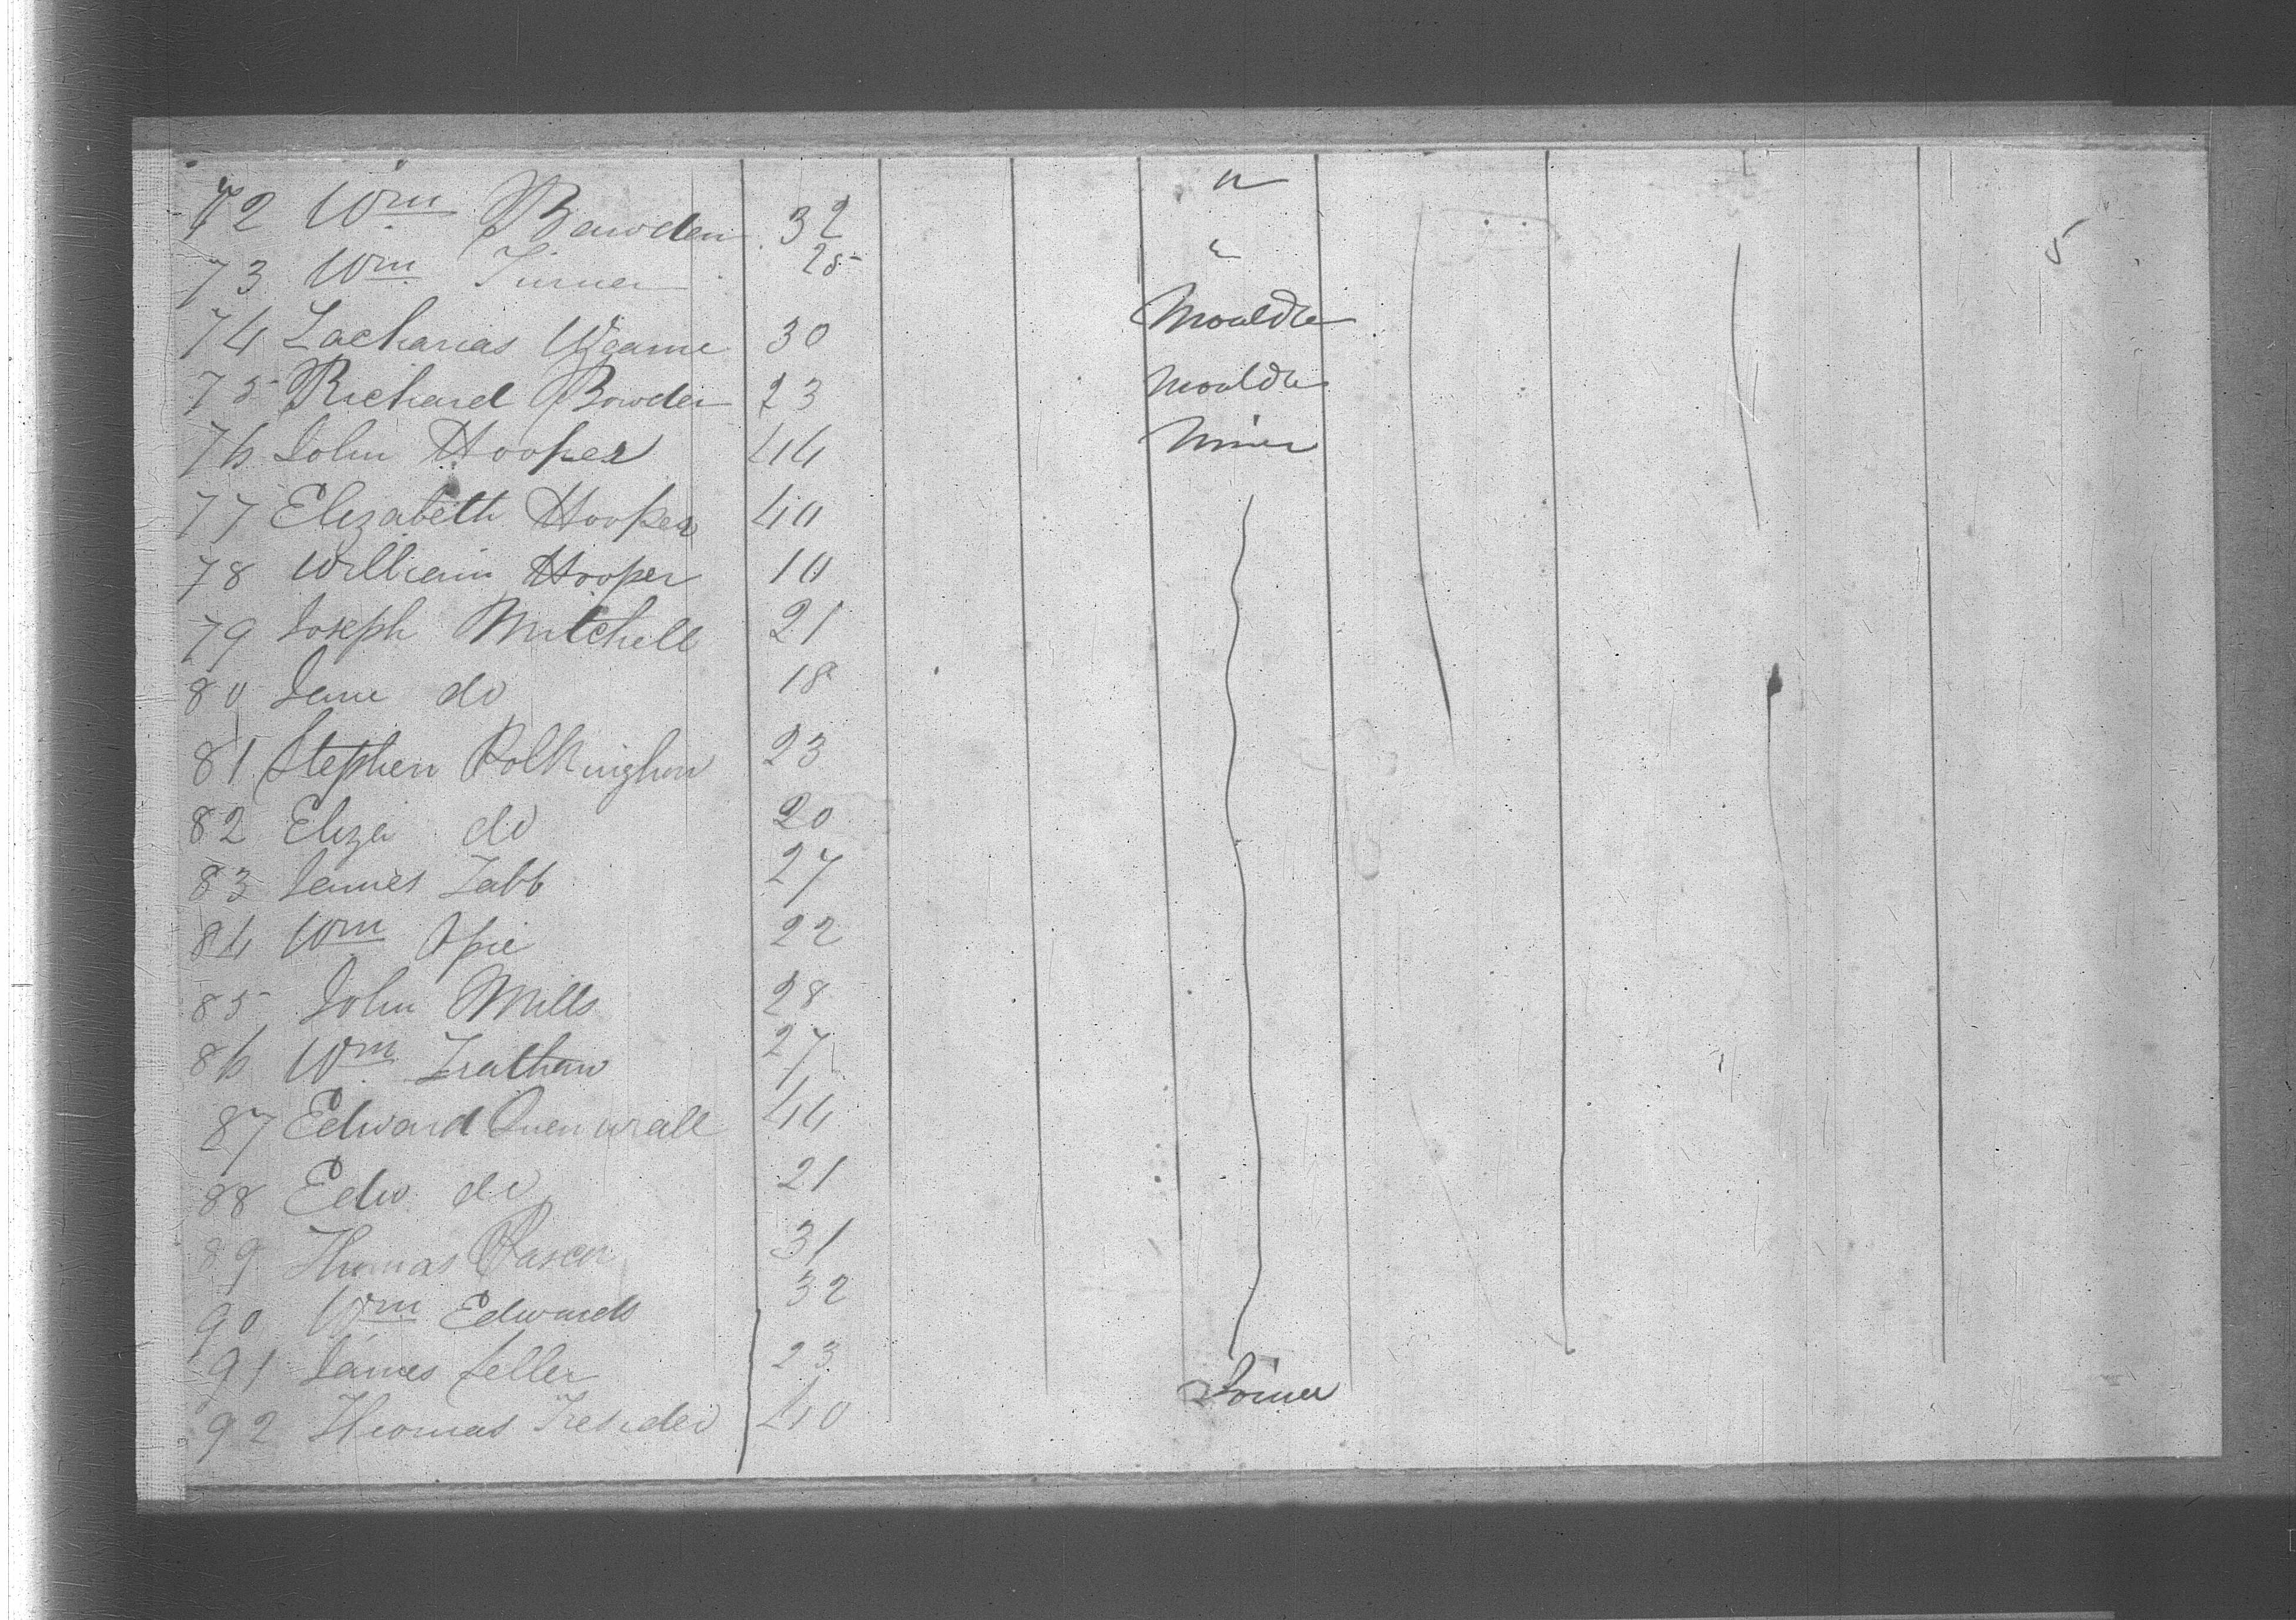 72 Wm Bawden 32 "
73 Wm Turner 25 " 5
74 Zacharias Wearne 30 Moulder
75 Richard Bowden 23 Moulder
76 John Hooper 44 Miner
77 Elizabeth Hooper 40
78 William Hooper 10
79 Joseph Mitchell 21
80 Jane do 18
81 Stephen Polkinghorn 23
82 Eliza do 20
83 James Tabb 27
84 Wm Opie 22
85 John Mills 28
86 Wm Trathan 27
87 Edward 44
88 Edw do 21
89 Thomas Pascoe 31
90 Wm Edwards 32
91 James 23
92 Thomas Tresider 40 Joiner